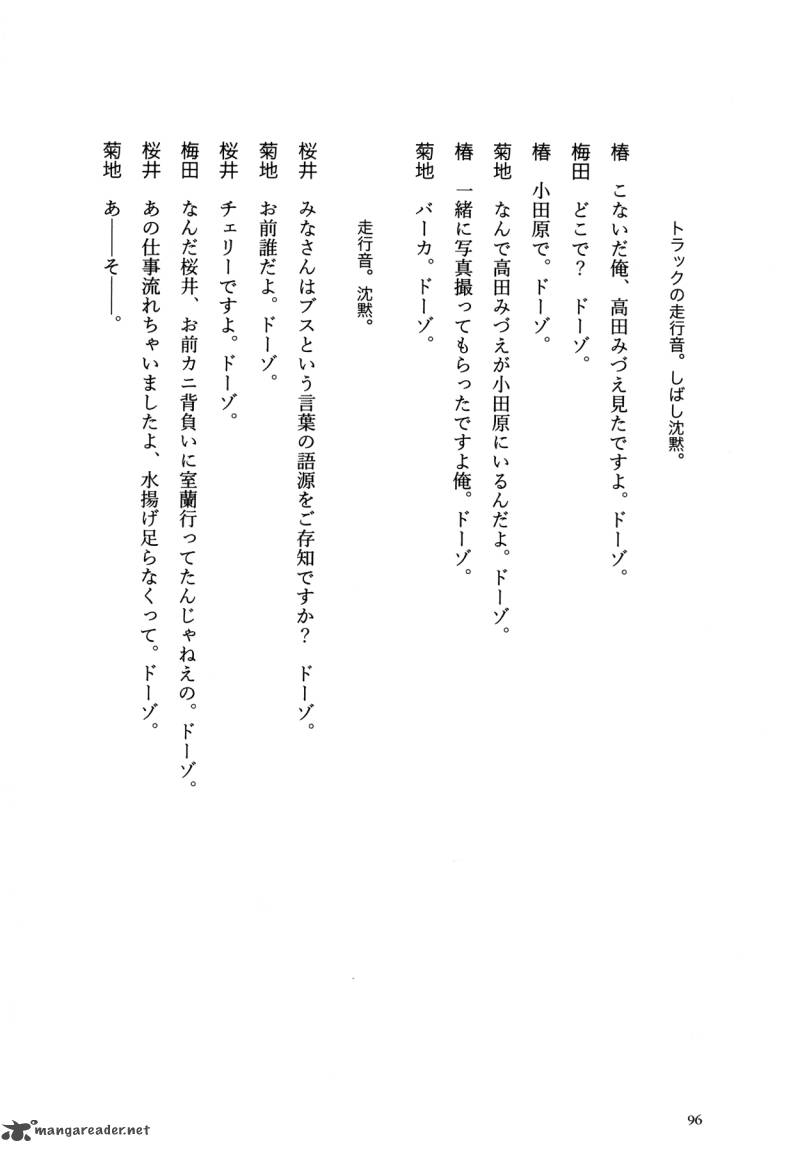 トラックの走行音。しばし沈黙。
椿　こないだ俺、高田みづえ見たですよ。ドーゾ。
梅田　どこで？　ドーゾ。
椿　小田原で。ドーゾ。
菊地　なんで高田みづえが小田原にいるんだよ。ドーゾ。
椿　一緒に写真撮ってもらったですよ俺。ドーゾ。
菊地　バーカ。ドーゾ。
走行音。沈黙。
桜井　みなさんはブスという言葉の語源をご存知ですか？　ドーゾ。
菊地　お前誰だよ。ドーゾ。
桜井　チェリーですよ。ドーゾ。
梅田　なんだ桜井、お前カニ背負いに室蘭行ってたんじゃねえの。ドーゾ。
桜井　あの仕事流れちゃいましたよ、水揚げ足らなくって。ドーゾ。
菊地　あ――そ――。
96
mangareader.net